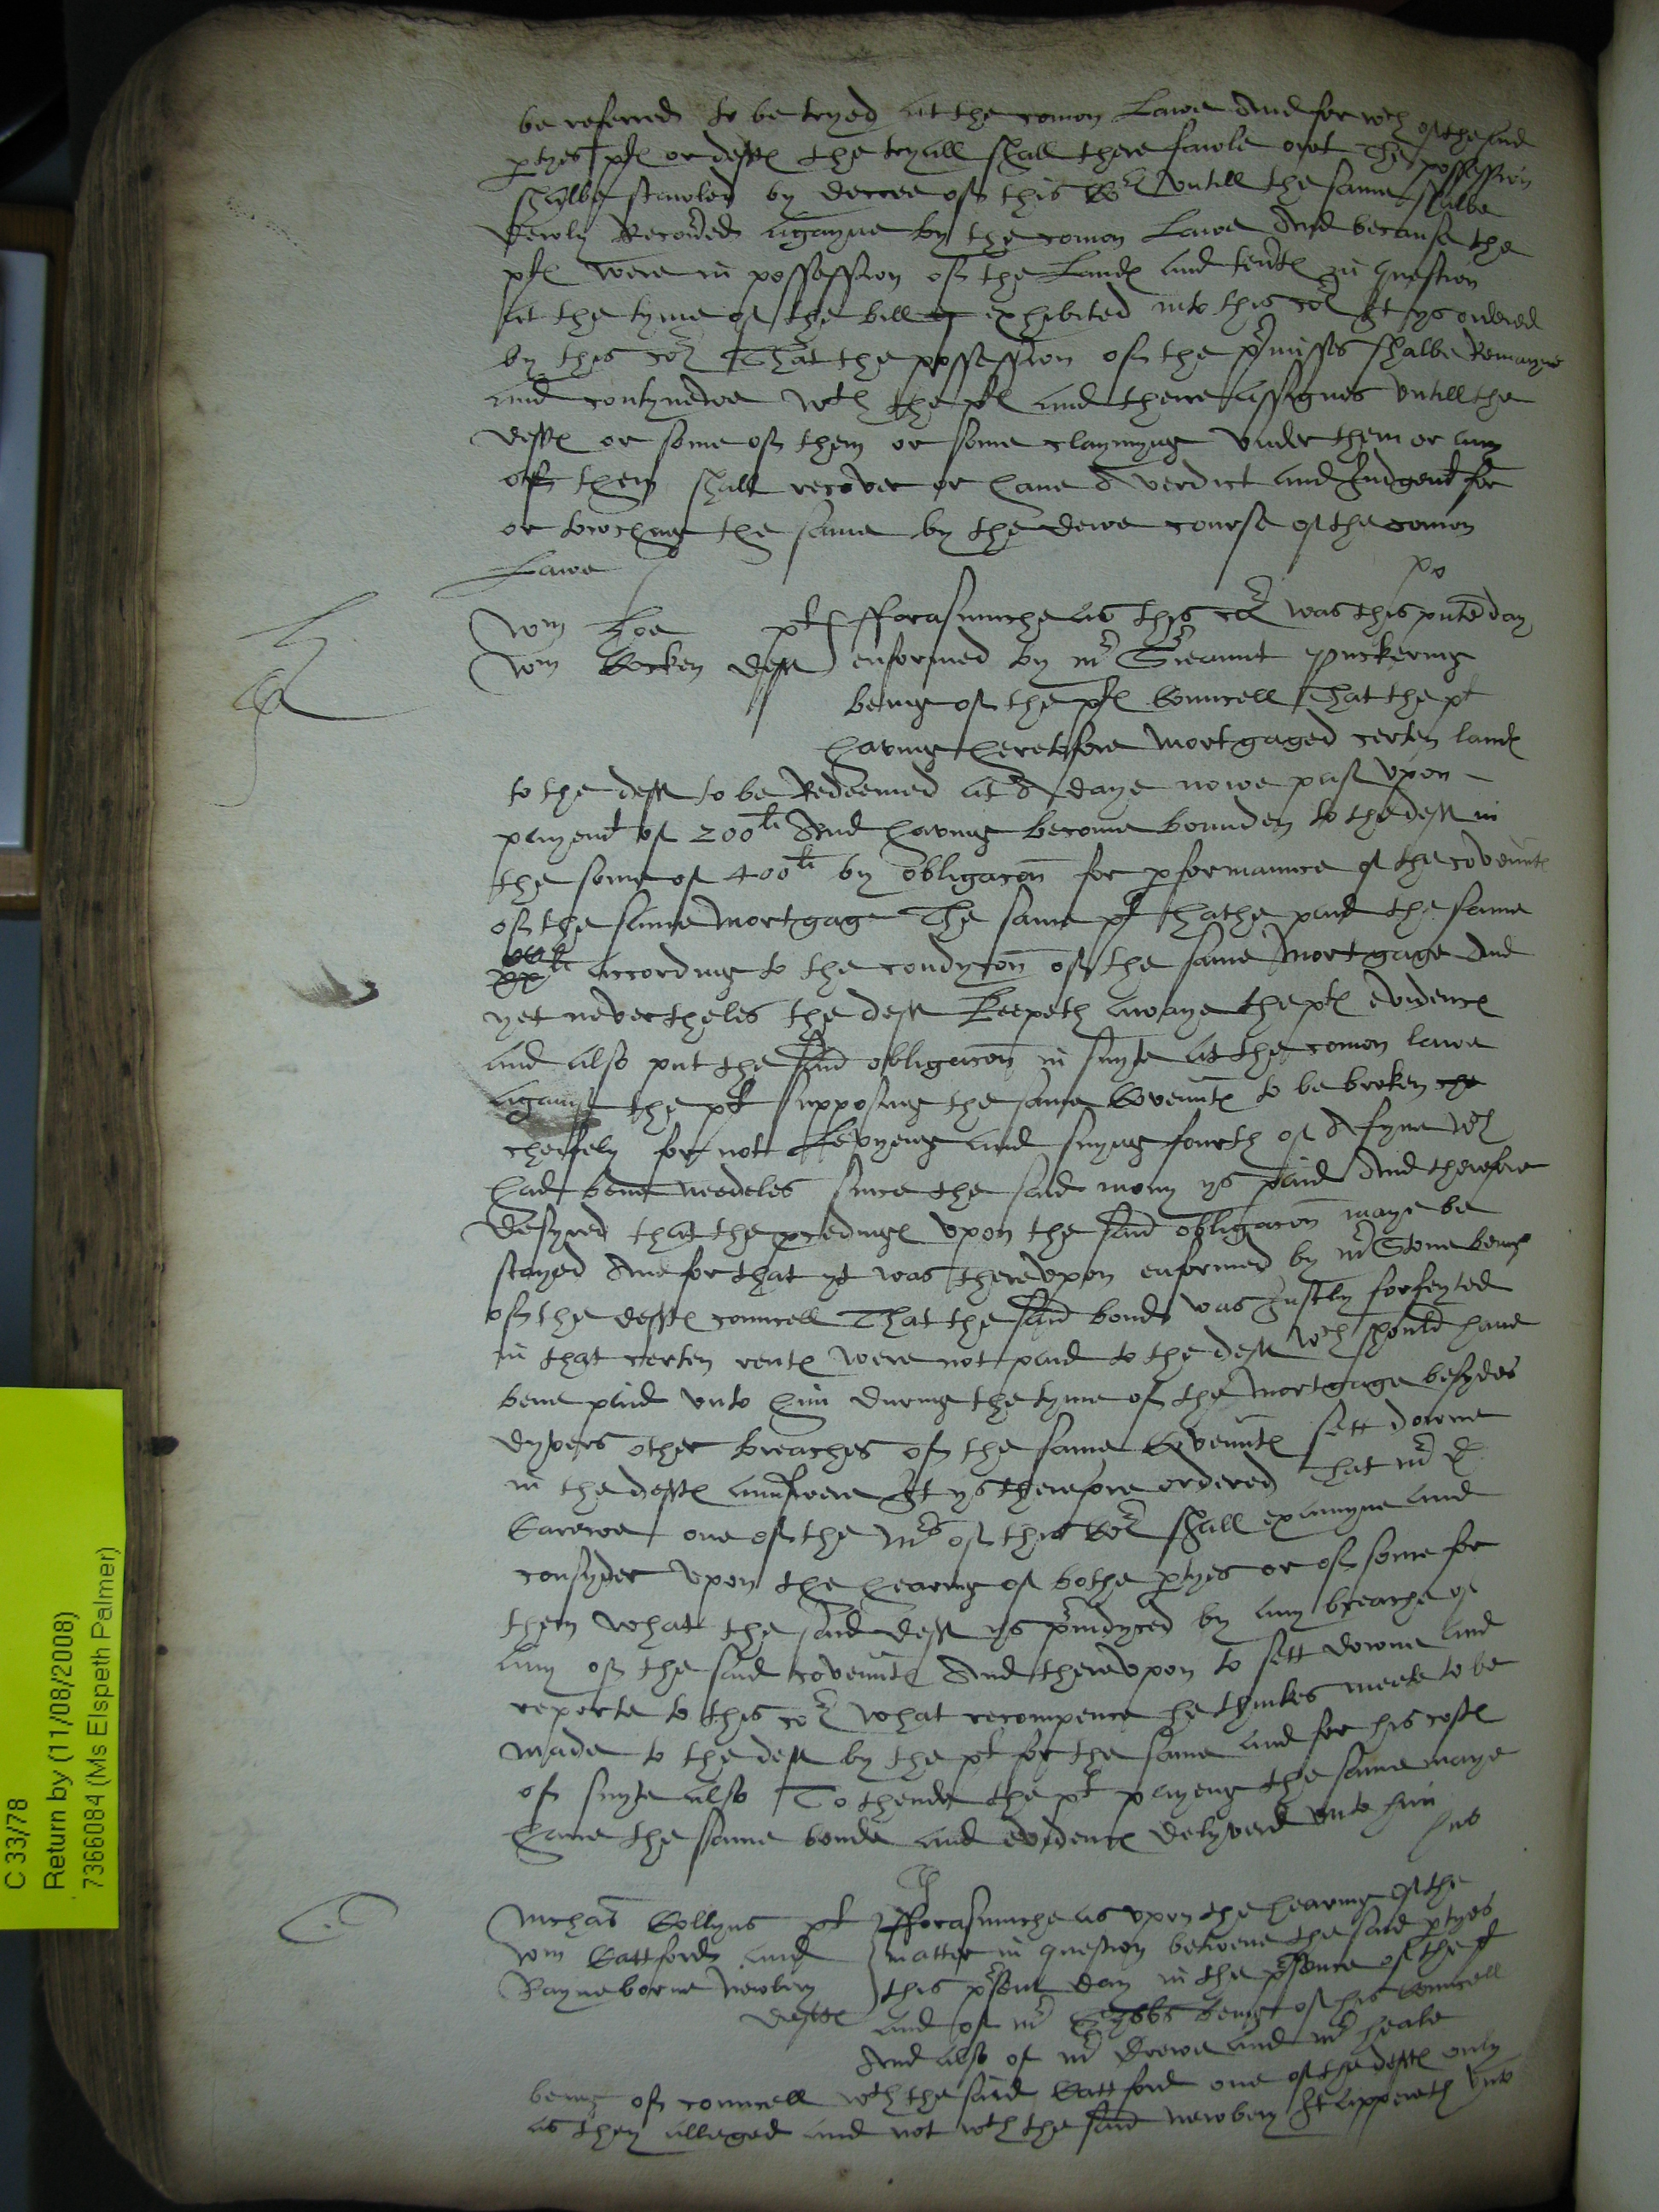 be referred to be tryed at the comon Lawe And for wch of the said
ptyes pl or deftes the tryall shall there fawle owt The possession
shalbe stawled by decree of this Cot untill the same shalbe
Recoved agayne by the comon Lawe And because the
ples were in possession of the Landes and tentes in question
at the tyme of the bill exhibited into this cot It ys ordered
by this cot That the possession of the pmisses shalbe Remayne
and contynewe wth the ples and there assignes untill the
deftes or some of them or some claymyng under them or any
of them shall recover or have A verdict and Judgemt for
or towching the same by the dewe course of the comon
Lawe
po
Wm Koe plt fforasmuche as this cot was this pnte day
Wm Cocken deft enformed by mr Sieaunt Puckering
being of the ples Councell That the plt
having heretofore mortgaged certen landes
to the deft to be Redeemed at A daye nowe past upon
payemt of 200li And having become bounden to the deft in
the some of 400li by obligacon for pformaunce of the covenntes
of the same mortgage The same plt hathe paid the same
according to the condycon of the same Mortgage And
yet nevertheles the deft keepeth awaye the ples evidences
and also put the said obligacon in suyte at the comon lawe
against the plt supposing the same Covenntes to be broken che
cheifely for nott Levyeng and suyng fourth of A fyne wch
had bene needeles since the said mony ys paid And therefore
desyred that the pcedinges upon the said obligacon maye be
stayed And for that yt was thereupon enformed by mr Stone being
of the deftes councell That the said bonde was Justly forfeyted
in that certen rentes were not paid to the deft wch should have
bene paid unto him during the tyme of the mortgage besydes
dyvers other breaches of the same Covenntes sett downe
in the deftes aunswere It ys therefore ordered That mr D
Carewe one of the Mrs of this Cot shall examyne and
consyder upon the hearing of bothe ptyes or of some for
them what the said deft ys piudyced by any breache of
any of the said covenntes And thereupon to sett downe and
reporte to this cot what recompence he thinkes meete to be
made to the deft by the plt for the same and for his costes
of suyte also To thende the plt payeng the same maye
have the same bonde and evidences delyvered unto him
Michas Collyns plt fforasmuche as upon the hearing of the
Wm Cattford and matter in question betwene the said ptyes
Rayneborne Newbery this psent day in the psence of the plt
deftes and of mr Gybbs being of his Councell
And also of mr Drewe and mr heale
being of councell wth the said Cattford one of the deftes only
as they alleged and not wth the said Newbery It appereth unto
C 33/78
Return by (11/08/2008)
7366084 (Ms Elspeth Palmer)